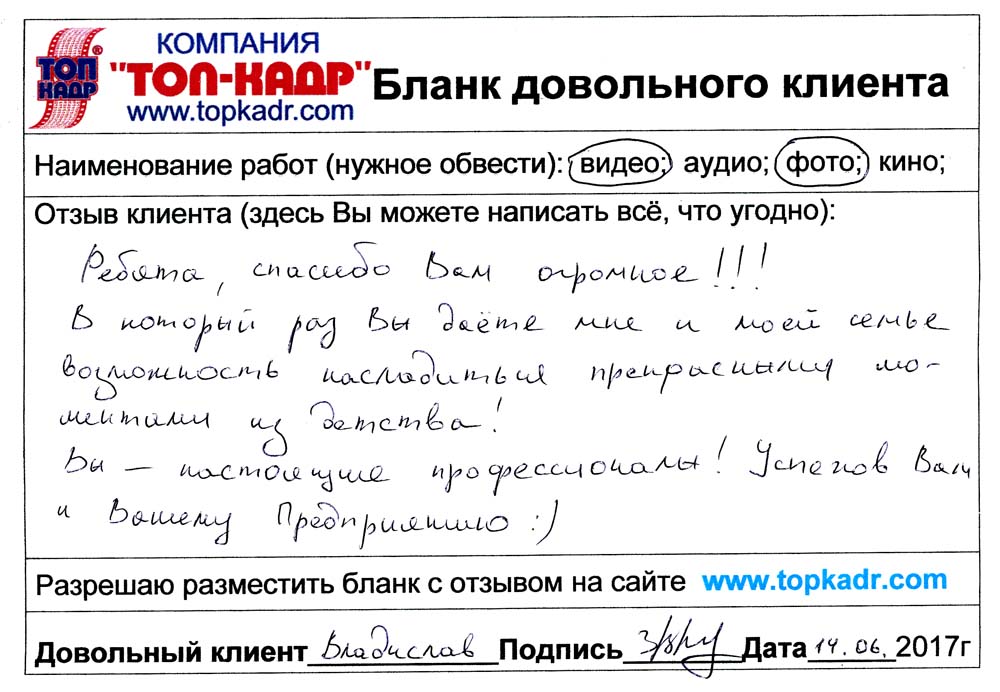 ТОП КАДР ®
КОМПАНИЯ
"ТОП-КАДР"
www.topkadr.com
Бланк довольного клиента
Наименование работ (нужное обвести): видео; аудио; фото; кино;
Отзыв клиента (здесь Вы можете написать всё, что угодно):
Ребята, спасибо Вам огромное!!!
В который раз Вы даёте мне и моей семье
возможность насладиться прекрасными мо-
ментами из детства!
Вы – настоящие профессионалы! Успехов Вам
и Вашему Предприятию :)
Разрешаю разместить бланк с отзывом на сайте www.topkadr.com
Довольный клиент Владислав Подпись Дата 14.06.2017г